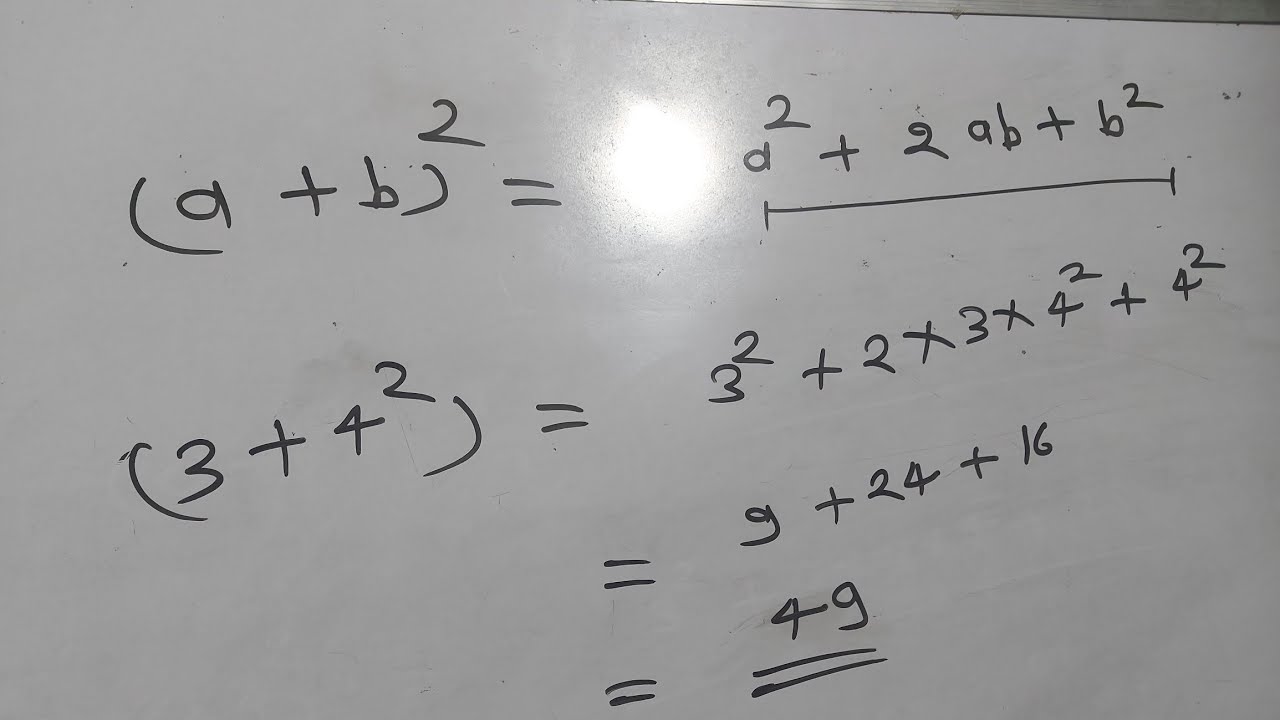 (a + b)² = a² + 2ab + b²
(3 + 4²) = 3² + 2 × 3 × 4² + 4²
= 9 + 24 + 16
= 49